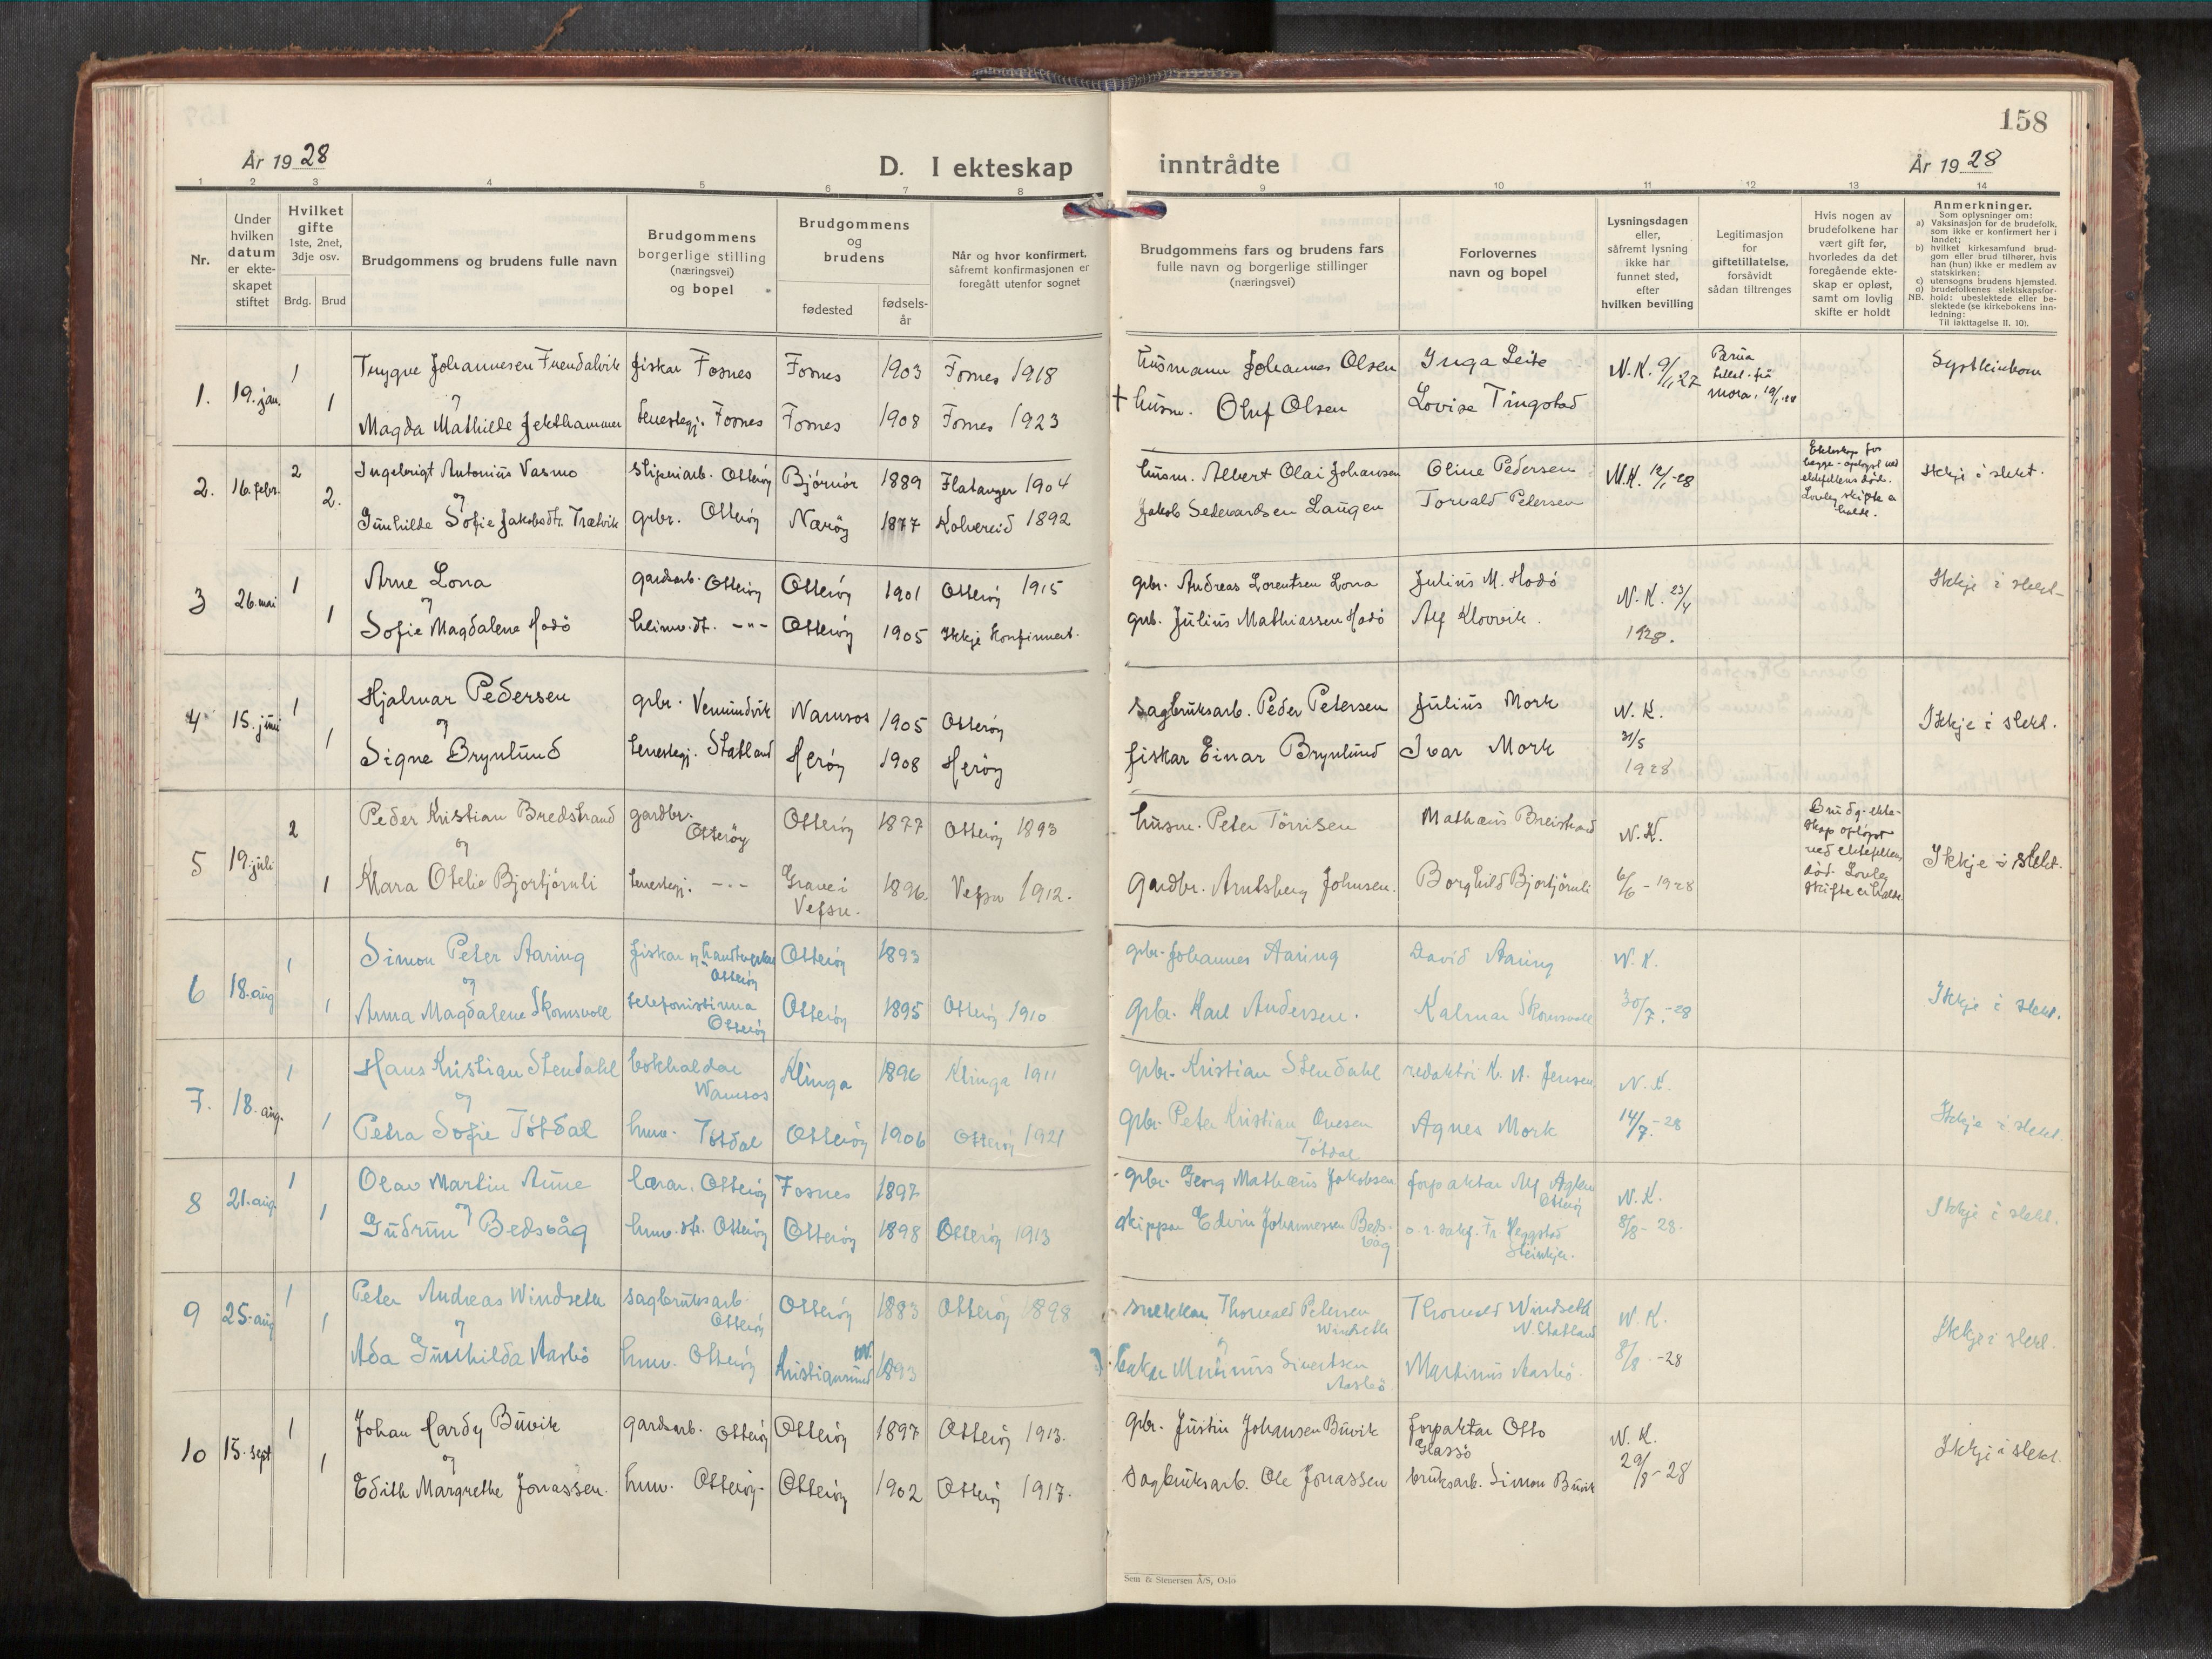 158
År 1928
D. I ekteskap inntrådte
År 1928
1 2 3 4 5 6 7 8 9 10 11 12 13 14
Nr.
Under
hvilken
datum
er ekte-
skapet
stiftet
Hvilket
gifte
1ste, 2net,
3dje osv.
Brdg. Brud
Brudgommens og brudens fulle navn
Brudgommens
borgerlige stilling
(næringsvei)
og bopel
Brudgommens
og
brudens
fødested
fødsels-
år
Når og hvor konfirmert,
såfremt konfirmasjonen er
foregått utenfor sognet
Brudgommens fars og brudens fars
fulle navn og borgerlige stillinger
(næringsvei)
Forlovernes
navn og bopel
Lysningsdagen
eller,
såfremt lysning
ikke har
funnet sted,
efter
hvilken bevilling
Legitimasjon
for
giftetillatelse,
forsåvidt
sådan tiltrenges
Hvis nogen av
brudefolkene har
vært gift før,
hvorledes da det
foregående ekte-
skap er opløst,
samt om lovlig
skifte er holdt
Anmerkninger.
Som oplysninger om:
a) Vaksinasjon for de brudefolk,
som ikke er konfirmert her i
landet;
b) hvilket kirkesamfund brud-
gom eller brud tilhører, hvis
han (hun) ikke er medlem av
statskirken;
c) utensogns brudens hjemsted.
d) brudefolkenes slektskapsfor-
NB. hold: ubeslektede eller be-
slektede (se kirkebokens inn-
ledning:
Til iakttagelse II. 10).
1. 19. jan. 1 Trygve Johannesen Fuendalvik fiskar Fosnes Fosnes 1903 Fosnes 1918 husmann Johannes Olsen Inga Leite N.K. 9/1 27 Brua tillat. frå mora, 19/1-28 Systkinborn
og
1 Magda Mathilde Jekthammer tenestegj. Fosnes Fosnes 1908 Fosnes 1923 + husm. Oluf Olsen Lovise Tingstad
2. 16. febr. 2 Ingebrigt Antonius Vasmo slipeniarb. Otterøy Bjørnör 1889 Flatanger 1904 husm. Albert Olai Johansen Oline Pedersen N.K. 12/1-28 Ikkje i slekt.
Ekteskap for
begge opløyst ved
ektefellens död.
Lovleg skifte er
halde.
og
2. Gunhilde Sofie Jakobsdtr. Trætvik grbr. Otterøy Nærøy 1877 Kolvereid 1892 Jakob Sedevardsen Laugen Torvald Petersen
3 26. mai 1 Arne Lona gardsarb. Otterøy Otterøy 1901 Otterøy 1915 grbr. Andreas Lorentsen Lona Julius M. Hodö N.K. 23/4 1928. Ikkje i slekt
og
1 Sofie Magdalene Hodö heimv. dt. -"- Otterøy 1905 Ikkje konfirmert. grb. Julius Mathiassen Hodö Alf Kloovik.
4 15. juni 1 Hjalmar Pedersen grbr. Vemundvik Namsos 1905 Otterøy sagbruksarb. Peder Petersen Julius Mork N.K. 31/5 1928 Ikkje i slekt.
og
1 Signe Brynlund tenestegj. Statland Herøy 1908 Herøy fiskar Einar Brynlund Ivar Mork
5 19. juli 2 Peder Kristian Bredstrand gardbr. Otterøy Otterøy 1877 Otterøy 1893 husm. Peter Törrisen Mathæus Breistrand N.K. 6/6-1928 Ikkje i slekt.
Brudg. ekte-
skap opløyst
ved ektefellens
död. Lovleg
skifte er halde
og
1 Klara Otelie Bjortjørnli tenestegj. -"- Grane i Vefsn. 1896. Vefsn 1912. gardbr. Arntsberg Johnsen. Borghild Bjortjørnli
6 18. aug 1 Simon Peter Aaring fiskar og handverkar Otterøy Otterøy 1893 grbr. Johannes Aaring David Aaring N.K. 30/7-28 Ikkje i slekt.
og
1 Anna Magdalene Skomsvoll telefonistinna Otterøy Otterøy 1895 Otterøy 1910 grbr. Karl Andersen. Kalmar Skomsvoll
7. 18. aug. 1 Hans Kristian Stendahl bokhaldar Namsos Klinga 1896 Klinga 1911 grbr. Kristian Stendahl redaktör K. A. Jensen N.K. 14/7-28 Ikkje i slekt.
og
1 Petra Sofie Tötdal hmv. Tötdal Otterøy 1906 Otterøy 1921 grbr. Peter Kristian Ovesen Tötdal Agnes Mork
8 21. aug. 1 Olav Martin Aune lærar. Otterøy Fosnes 1897 grbr. Georg Mathæus Jakobsen forpaktar Alf Aglen Otterøy N.K. 8/8-28. Ikkje i slekt.
og
1 Gudrun Bedsvåg hmv. dt. Otterøy Otterøy 1898 Otterøy 1913 skippar Edvin Johannesen Bedsvåg o.r.sakf. Fr. Heggstad Steinkjer.
9 25. aug 1 Peter Andreas Windseth sagbruksarb. Otterøy Otterøy 1883 Otterøy 1898 snekkar Thorvald Petersen Windseth Thorvald Windseth N. Statland N.K. 8/8-28 Ikkje i slekt.
og
1 Ada Gunhilda Aasbö hmv. Otterøy Kristiansund N. 1893 bakar Sivertsen Aasbö Martinus Aasbö
10 15. sept 1 Johan Hardy Buvik gardsarb. Otterøy Otterøy 1897 Otterøy 1913. grbr. Justin Johansen Buvik forpaktar Otto Glassö N.K. 29/8-28 Ikkje i slekt.
og
1 Edith Margrethe Jonassen. hmv. Otterøy. Otterøy 1902 Otterøy 1917. sagbruksarb. Ole Jonassen bruksarb. Simon Buvik
Sem & Stenersen A/S, Oslo